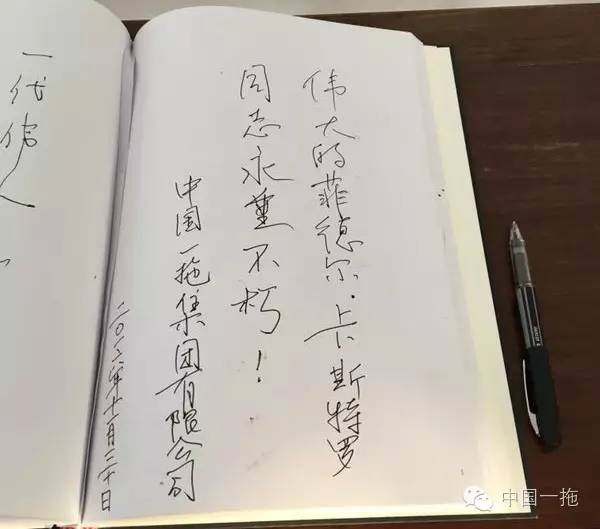 伟大的菲德尔·卡斯特罗
同志永垂不朽！
中国一拖集团有限公司
二〇一六年十一月三十日
一代伟人
中国一拖